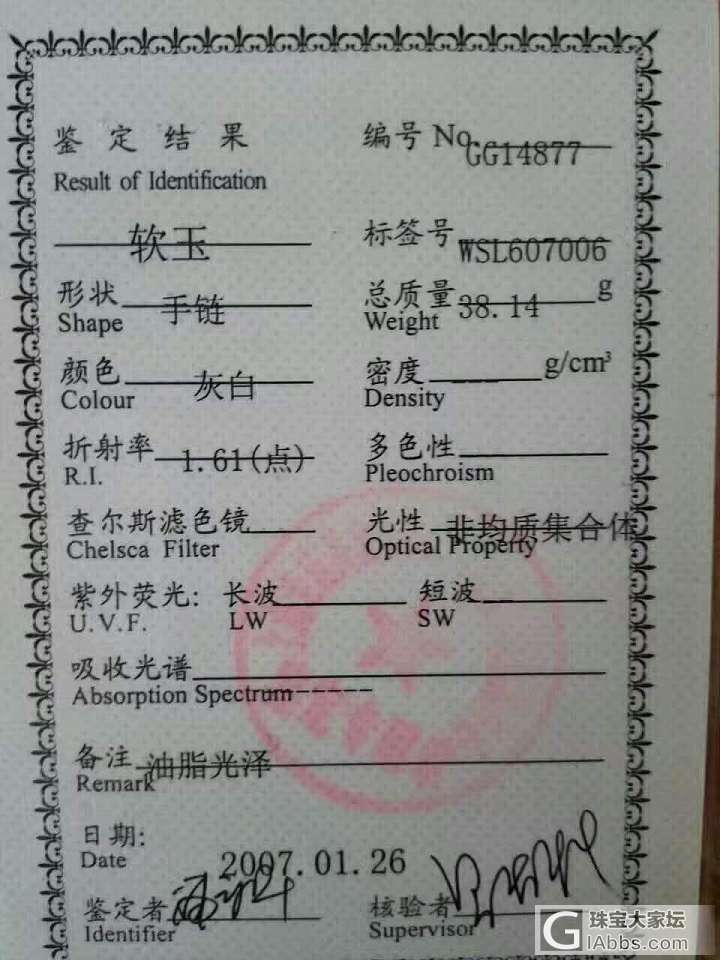 鉴定结果 编号 No. GG14877
Result of Identification
软玉 标签号 WSL607006
形状 手链 总质量 38.14 g
Shape Weight
颜色 灰白 密度 g/cm³
Colour Density
折射率 1.61(点) 多色性
R.I. Pleochroism
查尔斯滤色镜 光性 非均质集合体
Chelsca Filter Optical Property
紫外荧光: 长波 短波
U.V.F. LW SW
吸收光谱
Absorption Spectrum
备注 油脂光泽
Remark
日期: 2007.01.26
Date
鉴定者 核验者
Identifier Supervisor
珠宝大家坛
GIAbbs.com